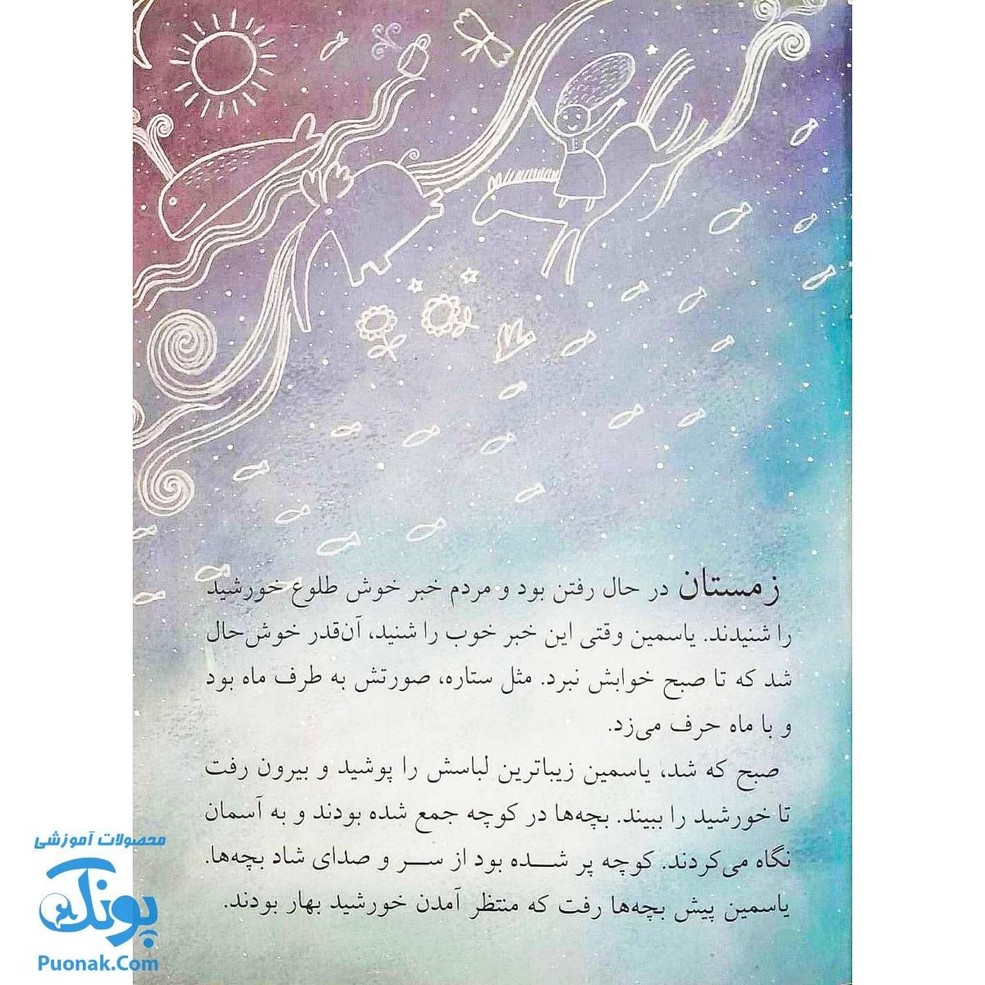 زمستان در حال رفتن بود و مردم خبر خوش طلوع خورشید
را شنیدند. یاسمین وقتی این خبر خوب را شنید، آن‌قدر خوش‌حال
شد که تا صبح خوابش نبرد. مثل ستاره، صورتش به طرف ماه بود
و با ماه حرف می‌زد.
صبح که شد، یاسمین زیباترین لباسش را پوشید و بیرون رفت
تا خورشید را ببیند. بچه‌ها در کوچه جمع شده بودند و به آسمان
نگاه می‌کردند. کوچه پر شده بود از سر و صدای شاد بچه‌ها.
یاسمین پیش بچه‌ها رفت که منتظر آمدن خورشید بهار بودند.
محصولات آموزشی
پونک
Puonak.Com